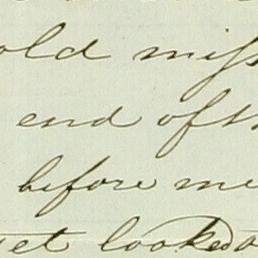 old miss
end of th
before me
et looked o